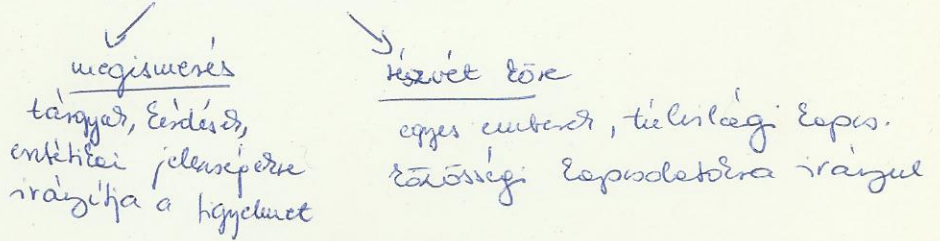 megismerés
tárgyak, kérdések,
esztétikai jelenségekre
irányítja a figyelmet
részvét köre
egyes emberek, túlvilági kapcs.
közösségi kapcsolatokra irányul